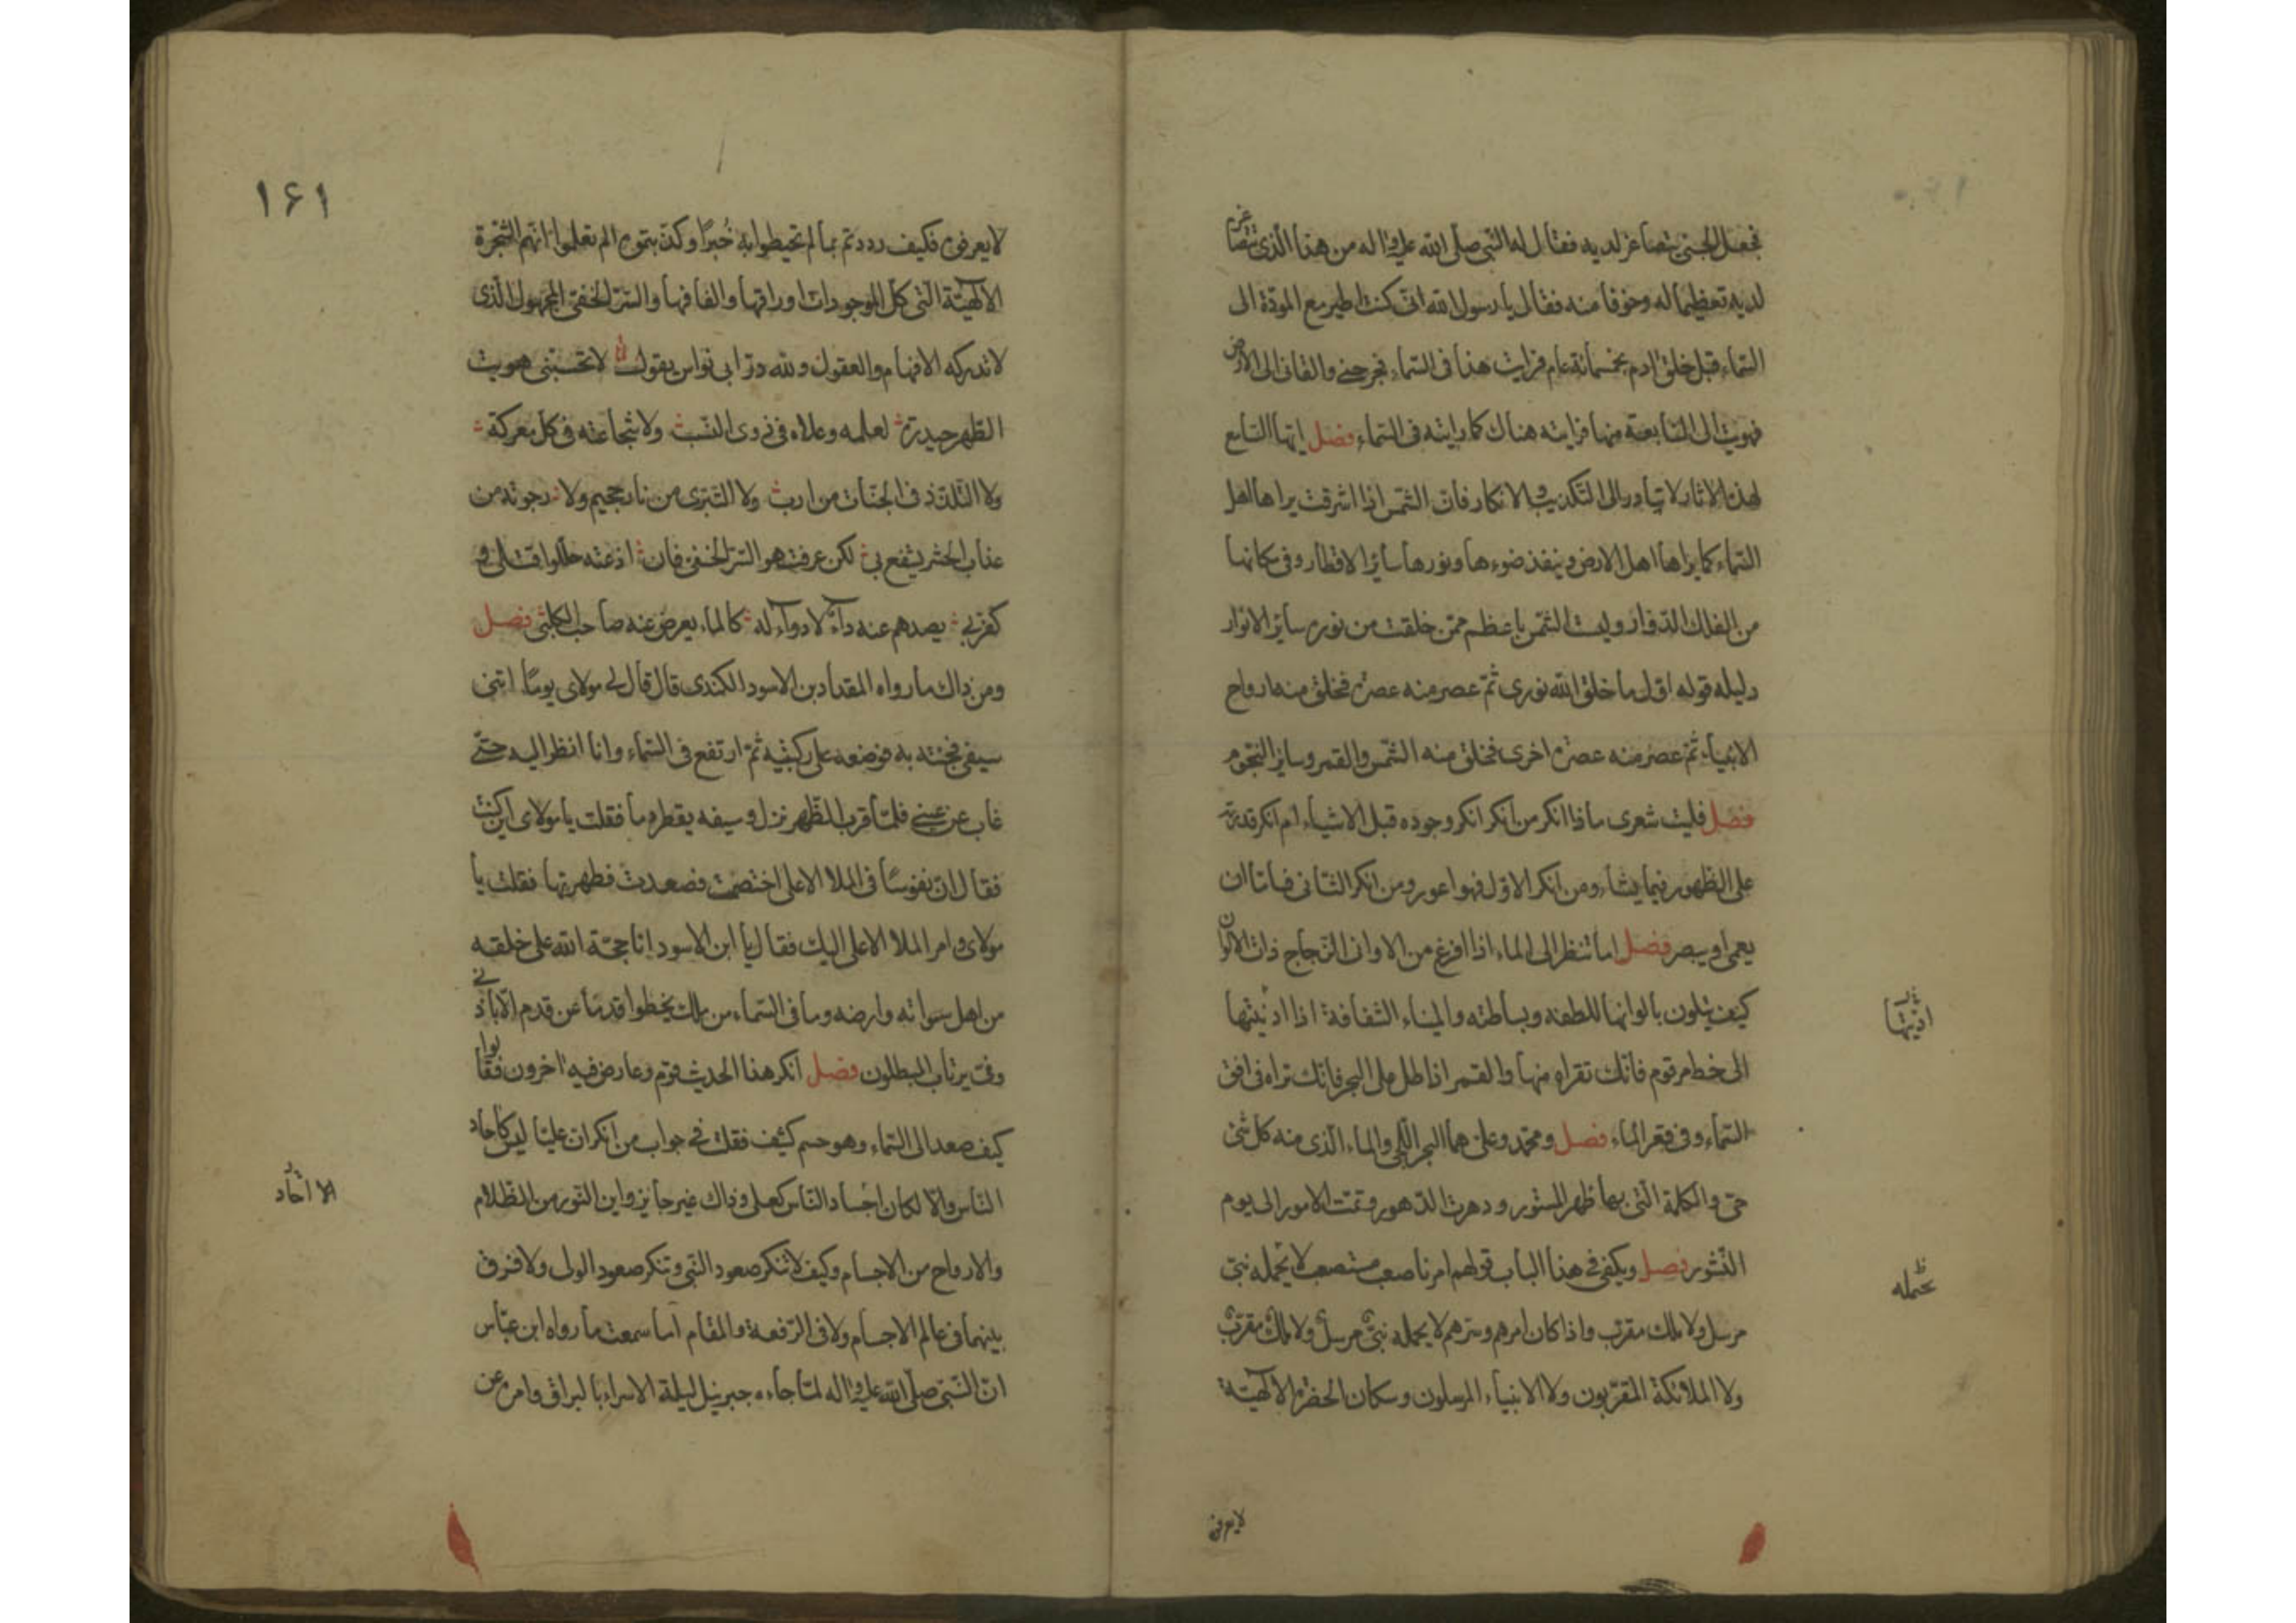 فجعل الجنى يتصاغر لديه فقال له النبى صلى الله عليه واله من هذا الذى تتصاغر
لديه تعظيما له وخوفا منه فقال يا رسول الله انى كنت اطير مع المردة الى
السماء قبل خلق ادم بخمسمائة عام فرايت هذا فى السماء فجرحنى والقانى الى الارض
فهويت الى السابعة منها فرايته هناك كما رايته فى السماء فصل ايها السامع
لهذه الاثار لا تبادر الى التكذيب والانكار فان الشمس اذا اشرقت يراها اهل
السماء كما يراها اهل الارض وينفذ ضوءها ونورها سائر الاقطار وفى مكانها
من الفلك الدوار وليست الشمس باعظم ممن خلقت من نوره سائر الانوار
دليله قوله اول ما خلق الله نورى ثم عصر منه عصرة فخلق منه ارواح
الانبياء ثم عصر منه عصرة اخرى فخلق منه الشمس والقمر وسائر النجوم
فصل فليت شعرى ماذا انكر من انكر انكر وجوده قبل الاشياء ام انكر قدرته
على الظهور فيما يشاء ومن انكر الاول فهو اعور ومن انكر الثانى فاما ان
يعمى او يبصر فصل اما تنظر الى الماء اذا افرغ من الاوانى الزجاج ذات الالوان
كيف يتلون بالوانها للطفه وبساطته والمياه الشفافة اذا ادنيتها
الى خط مرقوم فانك تقراه منها والقمر اذا طل على البحر فانك تراه فى افق
السماء وفى قعر الماء فصل ومحمد وعلى هما البحر اللجى والماء الذى منه كل شئ
حى والكلمة التى بها ظهر المستور ودهرت الدهور وتمت الامور الى يوم
النشور فصل ويكفى فى هذا الباب قولهم امرنا صعب مستصعب لا يحمله نبى
مرسل ولا ملك مقرب واذا كان امرهم وسرهم لا يحمله نبى مرسل ولا ملك مقرب
ولا الملائكة المقربون ولا الانبياء المرسلون وسكان الحضرة الالهية
ادنيتها
يحمله
لا يعرفون
١۶١
لا يعرفون فكيف رددتم بما لم تحيطوا به خبرا وكذبتموه الم تعلموا انهم الشجرة
الالهية التى كل الموجودات اوراقها والفافها والسر الخفى المجهول الذى
لا تدركه الافهام والعقول ولله در ابى نواس يقول لا تحسبنى هويت
الطهر حيدرة لعلمه وعلاه فى ذوى النسب ولا شجاعته فى كل معركة
ولا التلذذ فى الجنات من ارب ولا التبرى من نار جحيم ولا رجوته من
عذاب الحشر يشفع بى لكن عرفت هو السر الخفى فان اذعته حللوا قتلى و
كفر بى يصدهم عنه داء لا دواء له كالماء يعرض عنه صاحب الكلب فصل
ومن ذاك ما رواه المقداد بن الاسود الكندى قال قال لى مولاى يوما ائتنى
سيفى فجئته به فوضعه على ركبتيه ثم ارتفع فى السماء وانا انظر اليه حتى
غاب عن عينى فلما قرب الظهر نزل وسيفه يقطر دما فقلت يا مولاى اين كنت
فقال ان نفوسا فى الملا الاعلى اختصمت فصعدت فطهرتها فقلت يا
مولاى وامر الملا الاعلى اليك فقال يا ابن الاسود انا حجة الله على خلقه
من اهل سمواته وارضه وما فى السماء من ملك يخطوا قدما عن قدم الا باذنى
وفى يرتاب المبطلون فصل انكر هذا الحديث قوم وعارض فيه اخرون فقالوا
كيف صعد الى السماء وهو جسم كثيف فقلت فى جواب من انكر ان عليا ليس كاحاد
الناس والا لكان اجساد الناس كعلى وذاك غير جايز واين النور من الظلام
والارواح من الاجسام وكيف لا تنكر صعود النبى وتنكر صعود الولى ولا فرق
بينهما فى عالم الاجسام ولا فى الرفعة والمقام اما سمعت ما رواه ابن عباس
ان النبى صلى الله عليه واله لما جاءه جبرئيل ليلة الاسراء بالبراق وامره عن